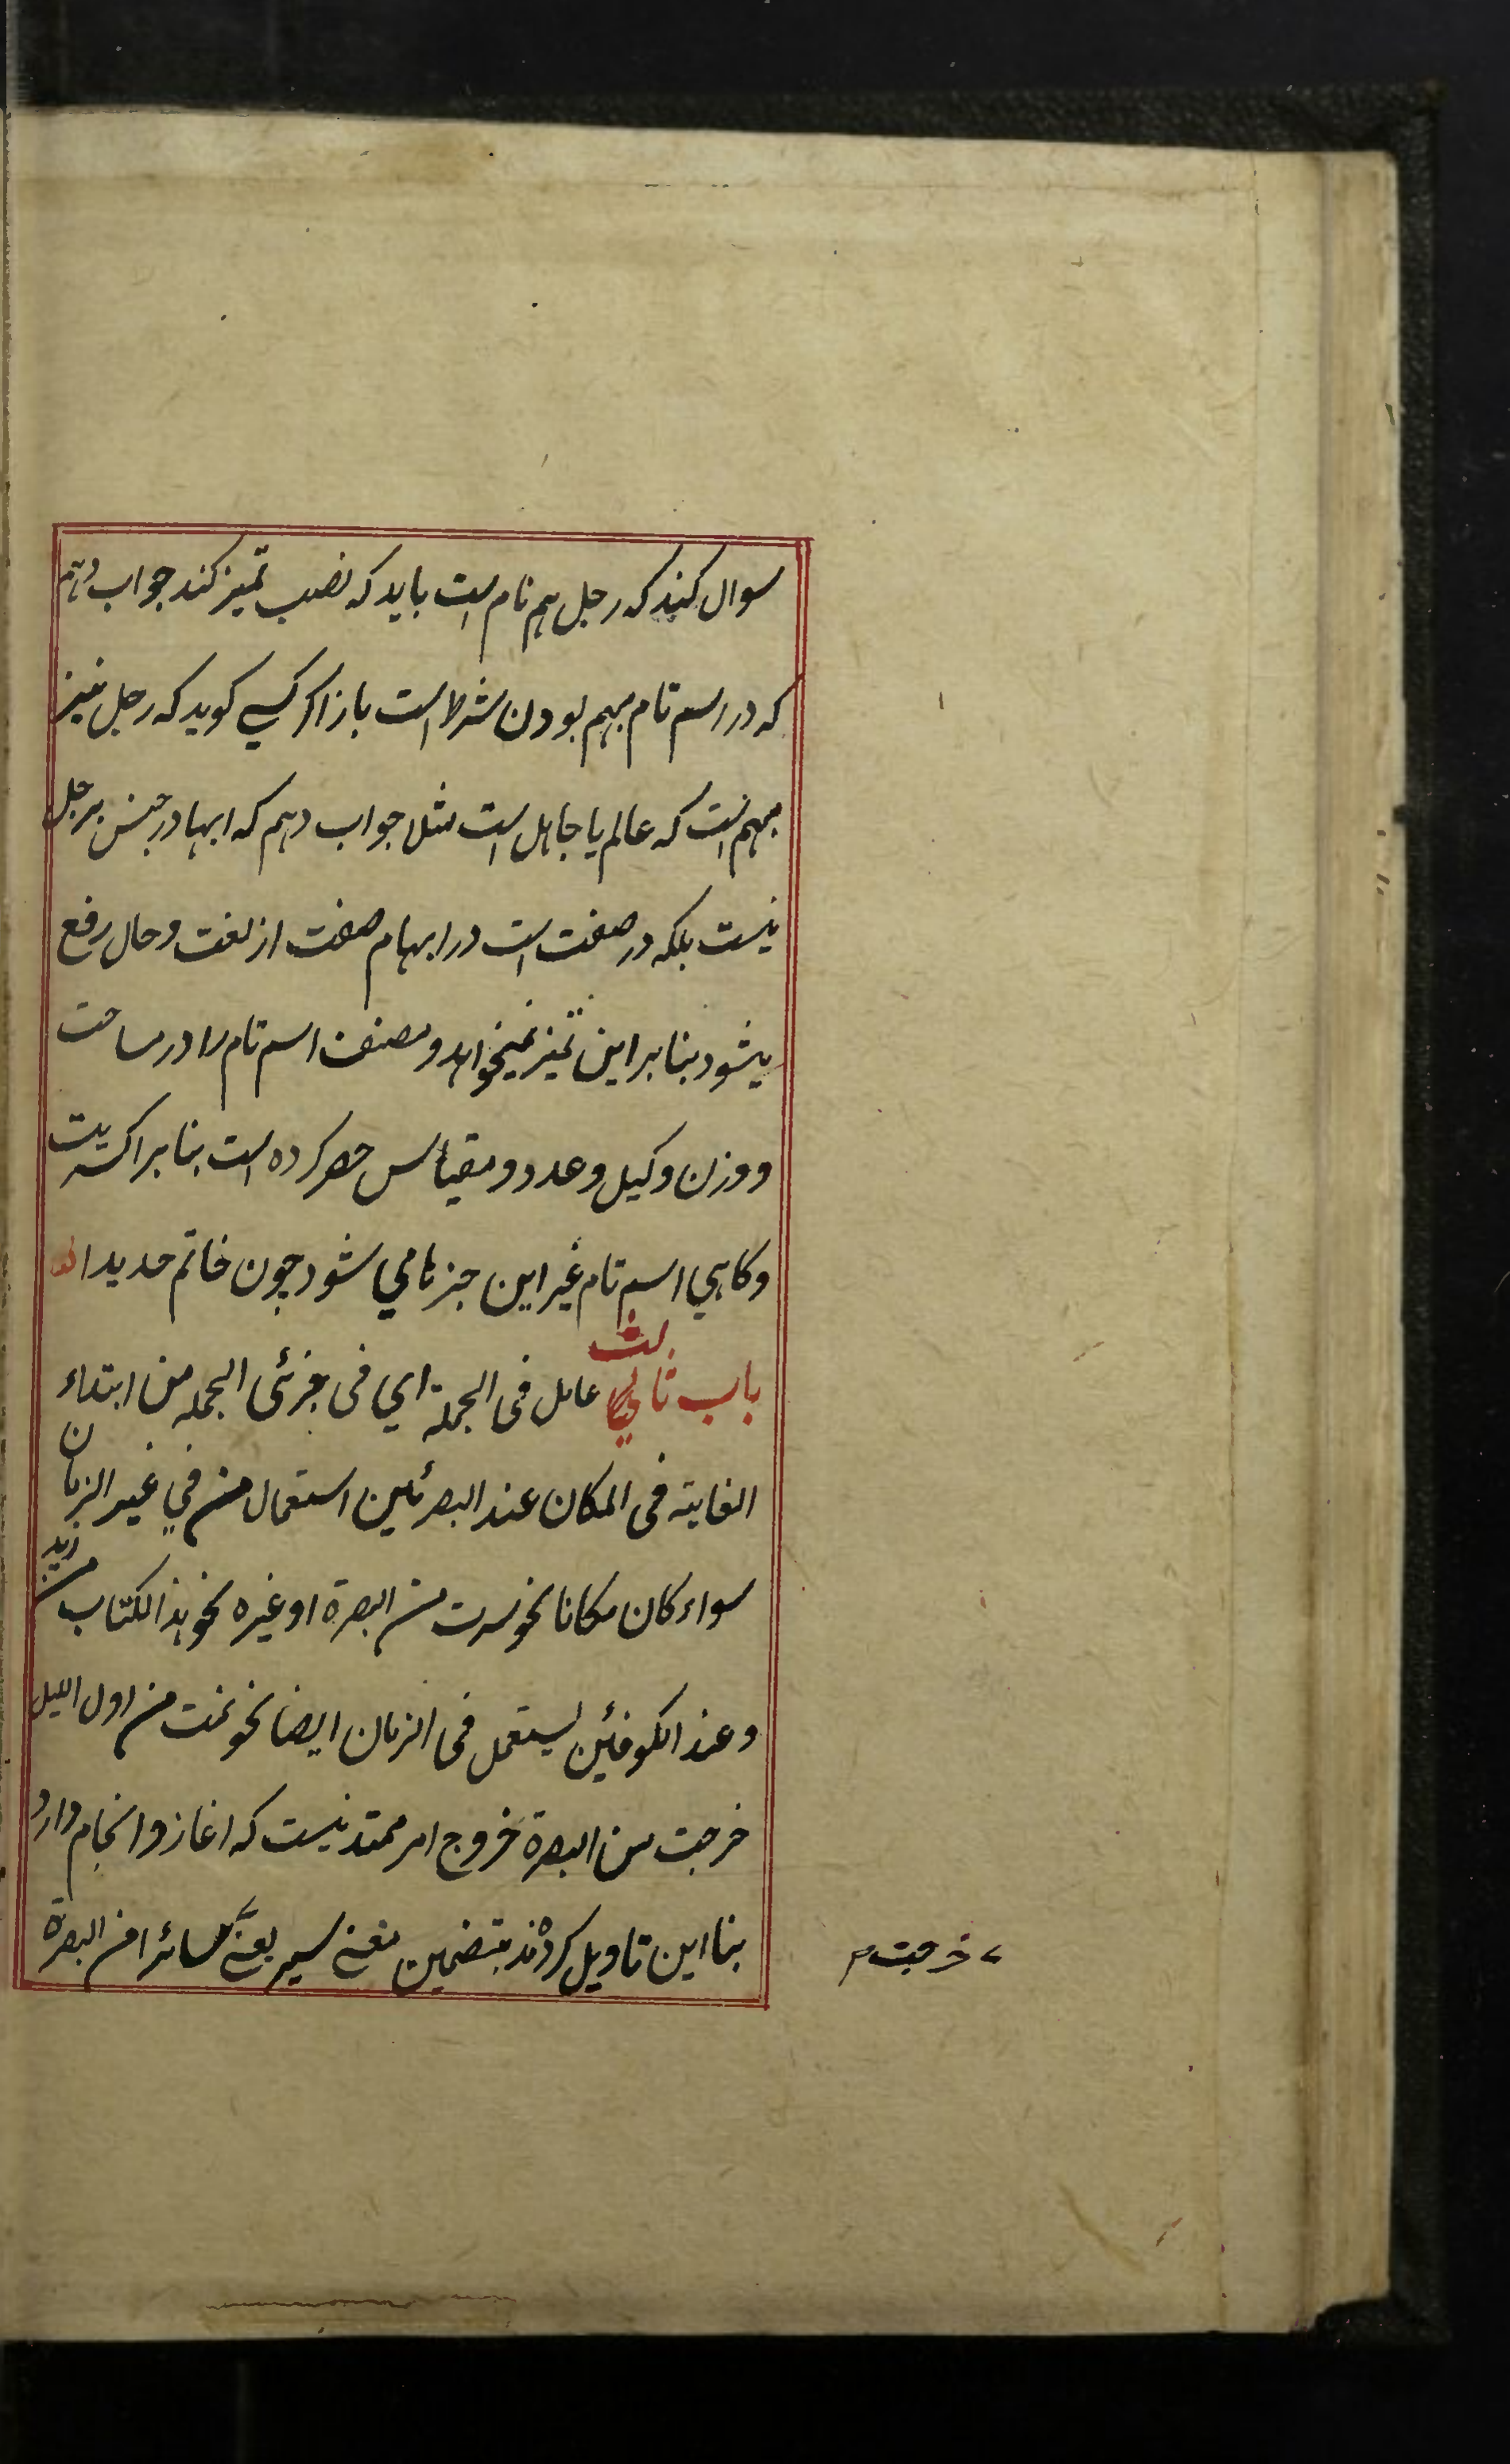 سوال کنند که رجل هم نام است باید که نصب تمیز کند جواب دهم
که در اسم تام مبهم بودن شرط است باز اکر کسی کوید که رجل نیز
مبهم است که عالم یا جاهل است مثلا جواب دهم که ابها در جنس رجل
نیست بلکه در صفت است در ابهام صفت از لغت و حال رفع
یشود بنا براین تمیز نمیخواهد و مصنف اسم تام را در مساحت
و وزن و کیل و عدد و مقیاس حصر کرده است بنا بر اکثریت
و کاهی اسم تام غیر این جیزها می شود جون خاتم حدیدا
باب ثالث عامل فی الجملة ای فی جزئی الجمله من ابتداء
الغایته فی المکان عند البصرئین استعمال من فی غیر الزمان
سواء کان مکانا نحو سرت من البصرة او غیره نحو هذا الکتاب من زید
و عند الکوفئین یستعمل فی الزمان ایضا نحو نمت من اول اللیل
خرجت من البصرة خروج امر ممتد نیست که اغاز و انجام دارد
بنا این تاویل کردند بتضمین معنی سیر یعنی سائرا من البصرة
خرجت